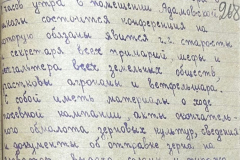 часов утра в помещении Адамовской
школы состоится конференция на
которую обязаны явится г.г. старосты
секретаря всех примарий шефы и
бухгалтера всех земельных обществ
участковы агрономы и ветфельдшера.
С собой иметь материалы о ходе
посевной кампании, акты окончатель-
ного обмолота зерновых культур, сведения
и документы об отправке зерна на
268